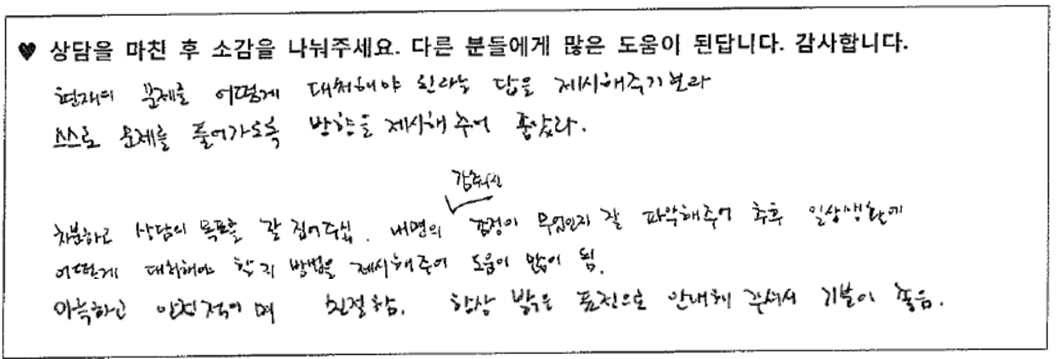 ♥ 상담을 마친 후 소감을 나눠주세요. 다른 분들에게 많은 도움이 된답니다. 감사합니다.
현재의 문제를 어떻게 대처해야 한다는 답을 제시해주기보다
스스로 문제를 풀어가도록 방향을 제시해 주어 좋았다.
감춰진
차분하고 상담의 목표를 잘 집어주심. 내면의 감정이 무엇인지 잘 파악해주어 추후 일상생활에
어떻게 대처해야 할지 방법을 제시해주어 도움이 많이 됨.
아늑하고 안정적이며 친절함. 항상 밝은 표정으로 안내해 주셔서 기분이 좋음.